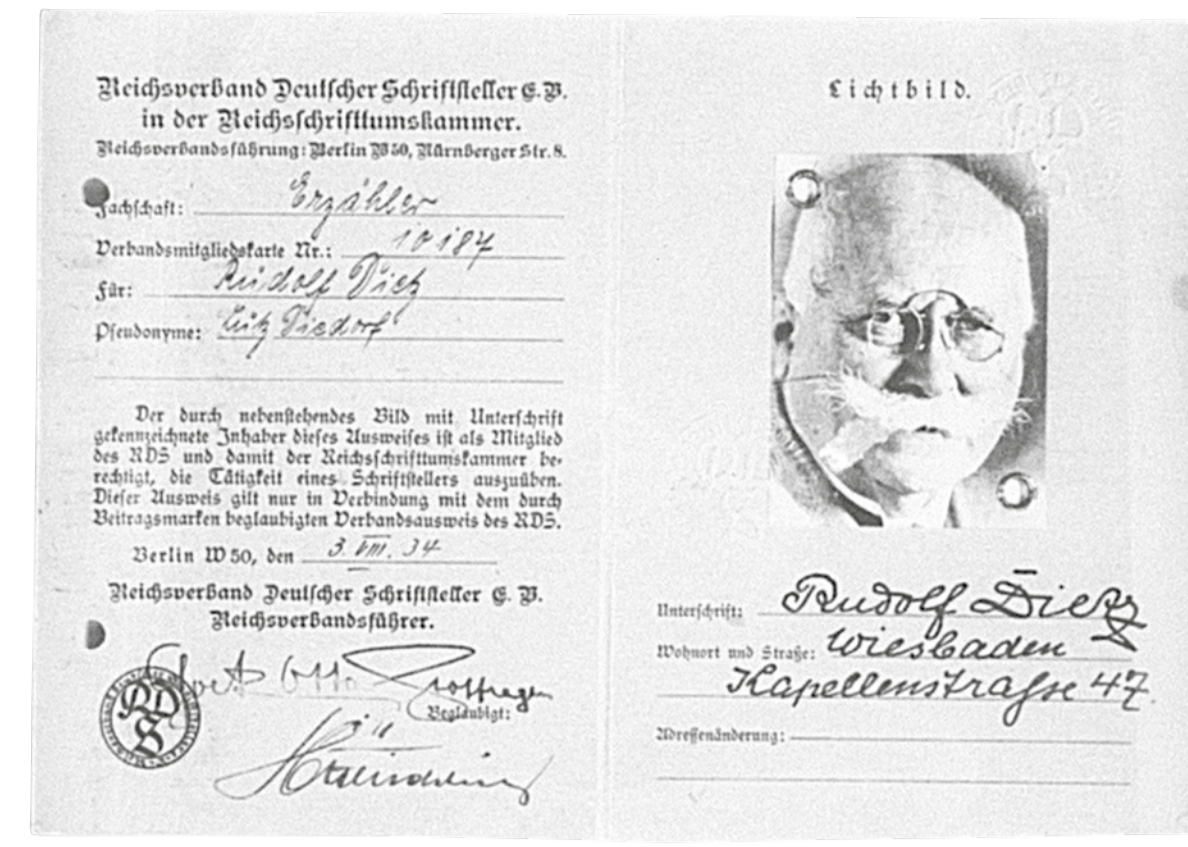 Reichsverband Deutscher Schriftsteller E. V.
in der Reichsschrifttumskammer.
Reichsverbandsführung: Berlin W 50, Nürnberger Str. 8.
Fachschaft: Erzähler
Verbandsmitgliedskarte Nr.: 10187
Für: Rudolf Dietz
Pseudonyme: Lutz Diedorf
Der durch nebenstehendes Bild mit Unterschrift
gekennzeichnete Inhaber dieses Ausweises ist als Mitglied
des RDS und damit der Reichsschrifttumskammer be-
rechtigt, die Tätigkeit eines Schriftstellers auszuüben.
Dieser Ausweis gilt nur in Verbindung mit dem durch
Beitragsmarken beglaubigten Verbandsausweis des RDS.
Berlin W 50, den 3. VIII. 34
Reichsverband Deutscher Schriftsteller E. V.
Reichsverbandsführer.
Beglaubigt:
RDS
Lichtbild.
Unterschrift: Rudolf Dietz
Wohnort und Straße: Wiesbaden
Kapellenstrasse 47.
Adressenänderung: